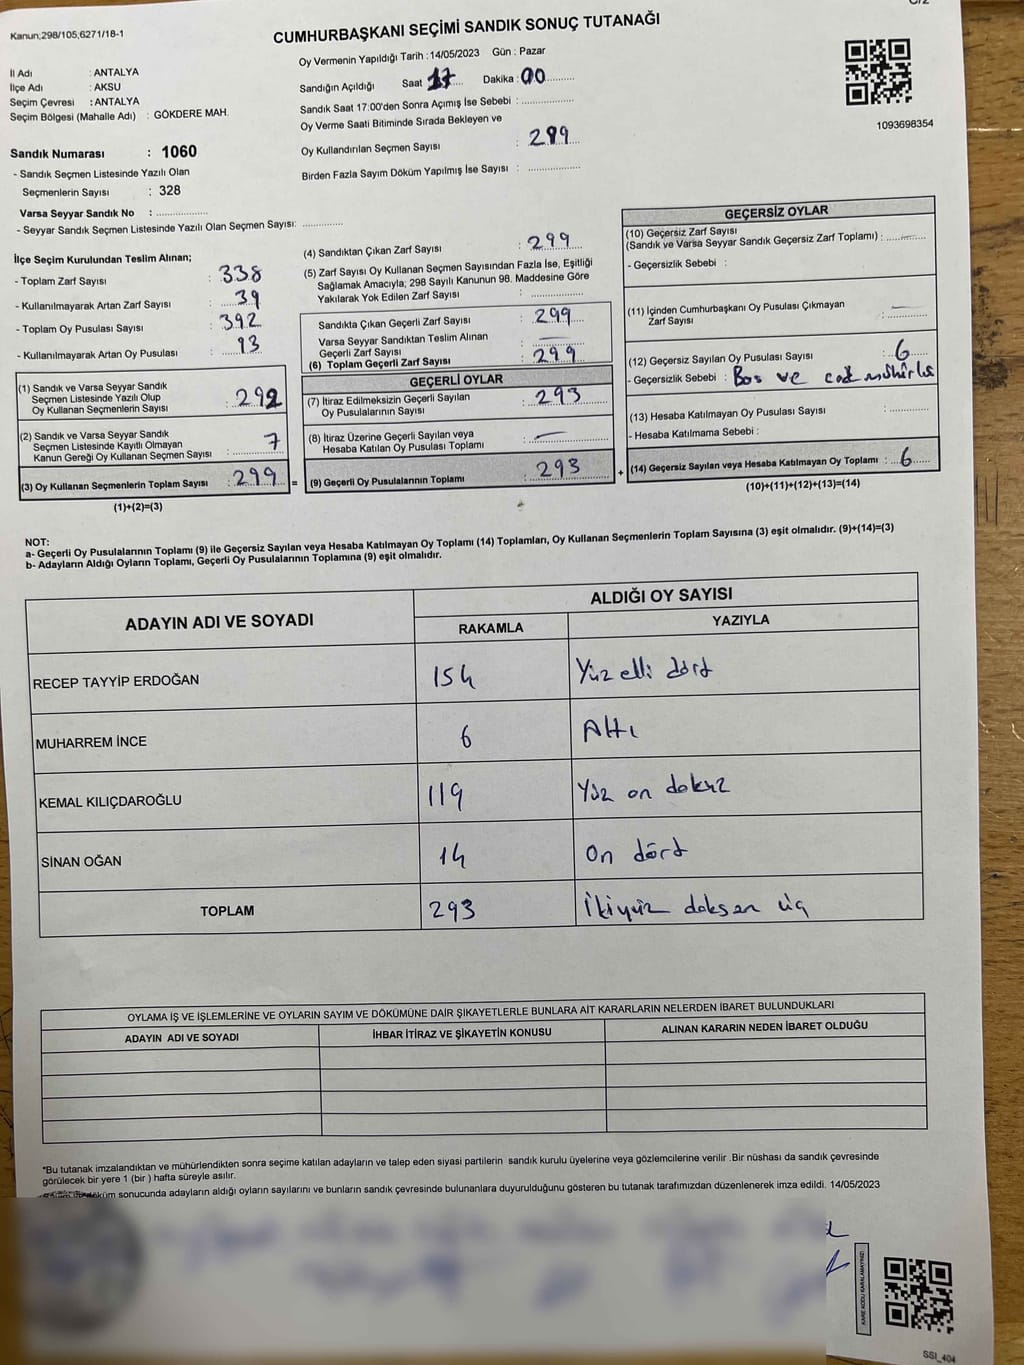 C/2
Kanun;298/105,6271/18-1
CUMHURBAŞKANI SEÇİMİ SANDIK SONUÇ TUTANAĞI
Oy Vermenin Yapıldığı Tarih : 14/05/2023 Gün : Pazar
İl Adı : ANTALYA
İlçe Adı : AKSU
Seçim Çevresi : ANTALYA
Seçim Bölgesi (Mahalle Adı) : GÖKDERE MAH.
Sandığın Açıldığı Saat 17 Dakika : 00
Sandık Saat 17:00'den Sonra Açımış İse Sebebi :
Oy Verme Saati Bitiminde Sırada Bekleyen ve
Oy Kullandırılan Seçmen Sayısı : 299
Birden Fazla Sayım Döküm Yapılmış İse Sayısı :
1093698354
Sandık Numarası : 1060
- Sandık Seçmen Listesinde Yazılı Olan
Seçmenlerin Sayısı : 328
Varsa Seyyar Sandık No :
- Seyyar Sandık Seçmen Listesinde Yazılı Olan Seçmen Sayısı:
İlçe Seçim Kurulundan Teslim Alınan;
- Toplam Zarf Sayısı : 338
- Kullanılmayarak Artan Zarf Sayısı : 39
- Toplam Oy Pusulası Sayısı : 392
- Kullanılmayarak Artan Oy Pusulası : 93
(1) Sandık ve Varsa Seyyar Sandık
Seçmen Listesinde Yazılı Olup
Oy Kullanan Seçmenlerin Sayısı : 292
(2) Sandık ve Varsa Seyyar Sandık
Seçmen Listesinde Kayıtlı Olmayan
Kanun Gereği Oy Kullanan Seçmen Sayısı : 7
(3) Oy Kullanan Seçmenlerin Toplam Sayısı : 299 =
(1)+(2)=(3)
(4) Sandıktan Çıkan Zarf Sayısı : 299
(5) Zarf Sayısı Oy Kullanan Seçmen Sayısından Fazla İse, Eşitliği
Sağlamak Amacıyla; 298 Sayılı Kanunun 98. Maddesine Göre
Yakılarak Yok Edilen Zarf Sayısı :
Sandıkta Çıkan Geçerli Zarf Sayısı : 299
Varsa Seyyar Sandıktan Teslim Alınan
Geçerli Zarf Sayısı : —
(6) Toplam Geçerli Zarf Sayısı : 299
GEÇERLİ OYLAR
(7) İtiraz Edilmeksizin Geçerli Sayılan
Oy Pusulalarının Sayısı : 293
(8) İtiraz Üzerine Geçerli Sayılan veya
Hesaba Katılan Oy Pusulası Toplamı : —
(9) Geçerli Oy Pusulalarının Toplamı : 293 +
GEÇERSİZ OYLAR
(10) Geçersiz Zarf Sayısı
(Sandık ve Varsa Seyyar Sandık Geçersiz Zarf Toplamı) : —
- Geçersizlik Sebebi :
(11) İçinden Cumhurbaşkanı Oy Pusulası Çıkmayan
Zarf Sayısı : —
(12) Geçersiz Sayılan Oy Pusulası Sayısı : 6
- Geçersizlik Sebebi : Boş ve
(13) Hesaba Katılmayan Oy Pusulası Sayısı :
- Hesaba Katılmama Sebebi :
(14) Geçersiz Sayılan veya Hesaba Katılmayan Oy Toplamı : 6
(10)+(11)+(12)+(13)=(14)
NOT:
a- Geçerli Oy Pusulalarının Toplamı (9) ile Geçersiz Sayılan veya Hesaba Katılmayan Oy Toplamı (14) Toplamları, Oy Kullanan Seçmenlerin Toplam Sayısına (3) eşit olmalıdır. (9)+(14)=(3)
b- Adayların Aldığı Oyların Toplamı, Geçerli Oy Pusulalarının Toplamına (9) eşit olmalıdır.
ADAYIN ADI VE SOYADI
ALDIĞI OY SAYISI
RAKAMLA YAZIYLA
RECEP TAYYİP ERDOĞAN 154 Yüz elli dört
MUHARREM İNCE 6 Altı
KEMAL KILIÇDAROĞLU 119 Yüz on dokuz
SİNAN OĞAN 14 On dört
TOPLAM 293 İkiyüz doksan üç
OYLAMA İŞ VE İŞLEMLERİNE VE OYLARIN SAYIM VE DÖKÜMÜNE DAİR ŞİKAYETLERLE BUNLARA AİT KARARLARIN NELERDEN İBARET BULUNDUKLARI
ADAYIN ADI VE SOYADI İHBAR İTİRAZ VE ŞİKAYETİN KONUSU ALINAN KARARIN NEDEN İBARET OLDUĞU
*Bu tutanak imzalandıktan ve mühürlendikten sonra seçime katılan adayların ve talep eden siyasi partilerin sandık kurulu üyelerine veya gözlemcilerine verilir .Bir nüshası da sandık çevresinde
görülecek bir yere 1 (bir ) hafta süreyle asılır.
döküm sonucunda adayların aldığı oyların sayılarını ve bunların sandık çevresinde bulunanlara duyurulduğunu gösteren bu tutanak tarafımızdan düzenlenerek imza edildi. 14/05/2023
KARE KODU KARALAMAYINIZ!
SSI_404